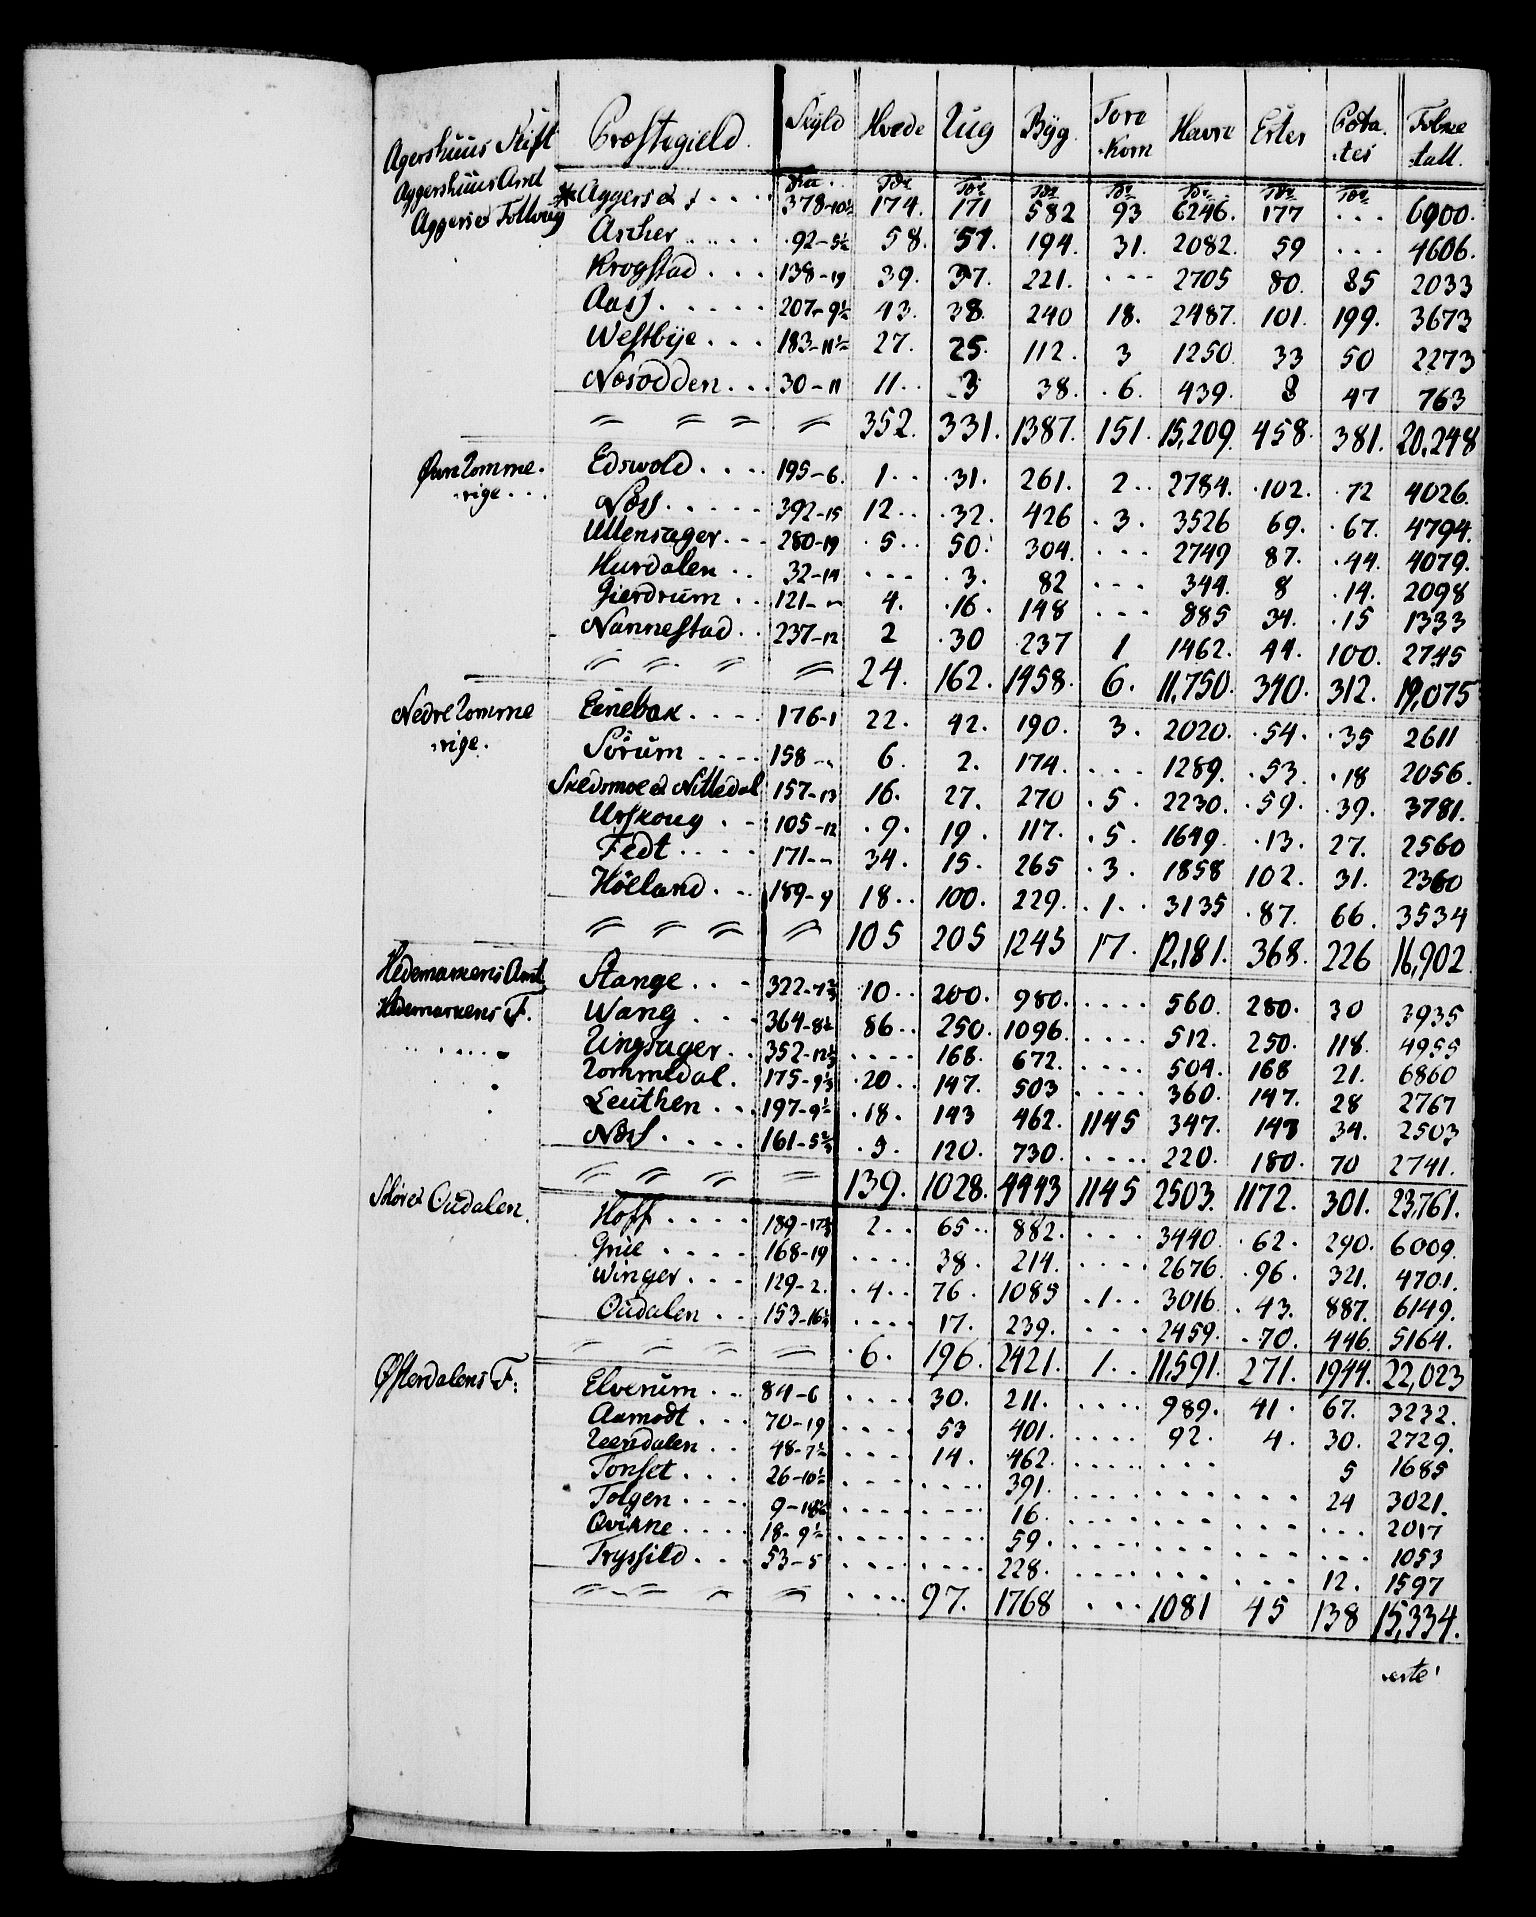 Agershuus Stift Præstegield. Skyld Hvede Rug Byg. Tore Havre Erter Pota Folme
.korn .tes .tall.
Aggershuus Amt
Aggers et Follougs
* Aggers et f. . . . 378-10½ 174. 171 582 93 6246. 177 . . . 6900.
Ascher . . . . 92-5½ 58. 57. 194. 31. 2082. 59 . . . 4606.
Krogstad . . . 138-19 39. 37. 221. . . . 2705 80. 85 2033
Aass . . . . . 207-9½ 43. 38. 240 18. 2487. 101. 199. 3673
Westbye . . . 183-11½ 27. 25. 112. 3 1250 33 50 2273
Næsodden . . . 30-11 11. . 3 38. . 6. 439. 8 47 763
〃 〃 〃 〃 352. 331. 1387. 151. 15,209. 458. 381. 20,248
Øvre Romme.
.rige . . .
Edswold . . . . 195-6. 1. . .31. 261. 2 . . 2784. .102. .72 4026.
Næs . . . . . 392-15 12. . .32. 426 . 3. 3526 69. .67. 4794.
Ullensager . . . 280-19 . 5 . . 50. 304. . . . 2749 87. .44. 4079.
Hurdalen . . 32-14 . . . . 3. 82 . . . 344. 8 .14. 2098
Gierdrum . . 121- 〃 4. .16. 148 . . . 885 34. .15 1333
Nannestad . . 237-12 2 .30 237 1 1462. 44. 100. 2745
〃 〃 〃 〃 24. 162. 1458. 6. 11,750. 340. 312. 19,075
Nedre Romme
.rige.
Eenebak . . . . 176-1 22. 42. 190. 3. 2020. .54. .35 2611
Sörum . . . . 158 - 〃 6. 2. 174. . . . . 1289. .53. .18 2056.
Skedsmoe et Nittedal 157-13 16. 27. 270 . 5. 2230. .59. .39. 3781.
Urskoug . . 105-12 . 9. 19. 117. . 5. 1649. .13. 27. 2560
Fedt . . . . 171- 〃 34. 15. 265 . 3. 1858 102. 31. 2360
Höeland . . . 189-9 18. . 100. 229. . 1. . 3135 .87. 66. 3534
〃 〃 〃 〃 105 205 1245 17. 12,181. 368. 226 16,902
Hedemarkens Amt
Hedemarkens F.
Stange . . . 322-7⅔ 10. . 200. 980. . . . . 560. 280. 30 3935
Wang . . . 364-8½ 86. . 250. 1096. . . . . 512. 250. 118. 4955
Ringsager . . 352-12⅓ . . . . 168. 672. . . . . 504. 168 21. 6860
Rommedal. 175-9⅓ .20. . 147. 503 . . . . 360. 147. 28 2767
Leuthen . . . 197-9½ .18. 143 462. 1145 347. 147 34. 2503
Næss . . . . 161-5⅔ . 5. 120. 730. . . . . 220. 180. 70 2741.
〃 〃 〃 〃 139. 1028. 4443 1145 2503. 1172. 301. 23,761.
Solör et Oudalen.
Hoff . . . . 189-17⅓ 2. . 65. . 882. . . . 3440. .62. 290. 6009.
Grue . . . . 168-19 . . . . 38. 214. . . . . 2676. .96. 321. 4701.
Winger . . . 129-2. . 4. . 76. 1085 . 1. . 3016. . 43. 887. 6149.
Oudalen . . 153-16½ . . . . 17. 239. . . . 2459. . 70. 446 5164.
〃 〃 〃 〃 .6. 196. 2421. 1. . 11,591. 271. 1944. 22,023
Østerdalens F:
Elverum . . 84-6 . . . . 30. 211. . . . . 989. 41. 67. 3232.
Aamodt . . . 70-19 . . . . 53 401. . . . . 92. 4. 30. 2729.
Reendalen . . 48-7½ . . . . 14. 462. . . . . . . . 5 1685
Tonset . . . 26-10½ . . . . . . . . 391. . . . . . . . . . . 24 3021.
Tolgen . . . . 9-18½ . . . . . . . . 16. . . . . . . . . . . . . . 2017
Qvikne . . . . 18-9½ . . . . . . . . 59. . . . . . . . . . . . . . 1053
Tryssild . . . 53-5 . . . . . . . . 228. . . . . . . . . . . 12. 1597
〃 〃 〃 〃 . . . . 97. 1768 . . . 1081 45 138 15,334.